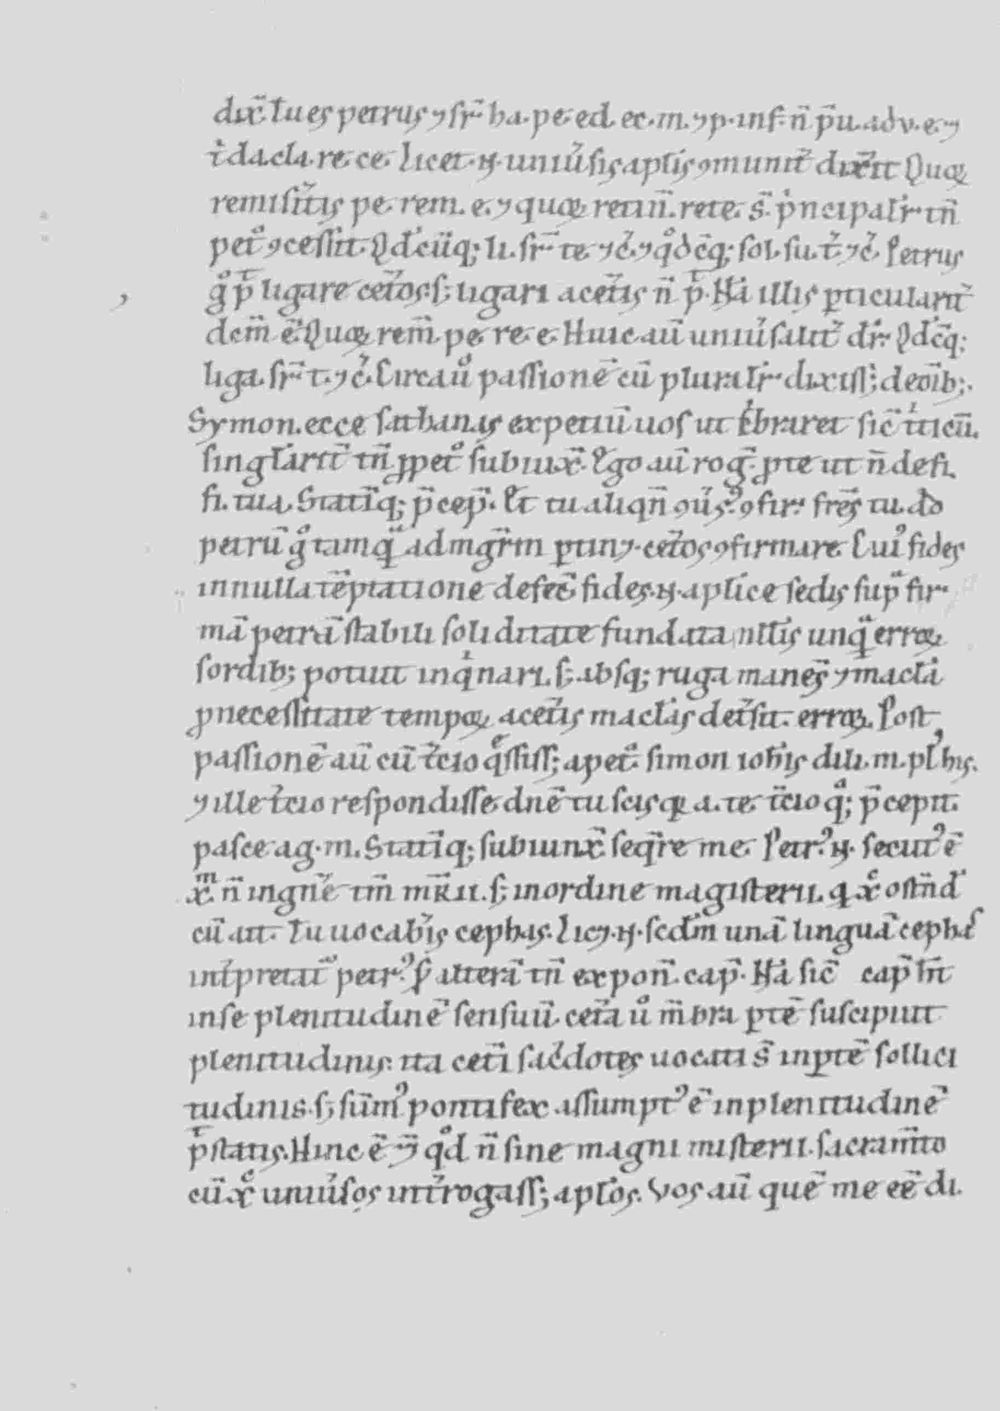 dix̄. Tu es petrus ⁊ sr̄ ha. pe. ed. ec. m. ⁊ p. inf. n̄ p̄u. adv. e. ⁊
t. da cla. re. ce. licet. n. uniu̓sis apl̓is ꝯmunit̓ dix̓it Quoꝝ
remisit̓is pe. rem. e. ⁊ quoꝝ retin̄. rete. s̄. p̓ncipalr̓ tn̄
pet̊ ꝯcessit. Qd̓cūq; li. sr̄ te ⁊c̓. ⁊ q̊dc̄q; sol. su. t̓. ⁊c̓. Petrus
g̊ p̄t ligare cet̓os. s; ligari a cet̓is n̄ p̄t. Nā illis ꝑticularit̓
dcm̄ ē. Quoꝝ rem̄. pe. re. e. Huic aū uniu̓salit̓ dr̄. Qd̓c̄q;
liga. sr̄ t. ⁊c̓. Circa ů passionē cū pluralr̓ dixiss; de oīb;.
Symon. ecce sathanas expetiu̅ uos ut c̓braret sic̄ t̓ticū.
singlarit̓ tn̄ ꝓ pet̊ subiux̄. Ego au̅ rog̅. ꝓ te ut n̄ defi.
fi. tua. Statīq; p̄cep̄. Et tu aliqn̄ ꝯu̓s᷒. ꝯfir. fres̄ tu. ad
petrū g̊ tamqͣ ad mgr̄m ꝑtin; cet̓os ꝯfirmare. Cui᷒ fides
in nulla tēptatione defec̄ fides. n. aplice sedis supͣ fir-
mā petrā stabili soliditate fundata nll̓is unqͣ erroꝝ
sordib; potuit inqͥnari. s; absq; ruga manes̄ ⁊ macl̓a
ꝓ necessitate tempoꝝ a cet̓is macl̓as det̓sit. erroꝝ. Post
passionē aū cū t̓cio q̓siss; a pet̊. simon ioh̓is dili. m. pl̓ his.
⁊ ille t̓cio respondisse. dn̄e tu scis qͣ a. te. t̓cio qͣ; p̄cepit.
pasce ag. m. Statīq; subiunx̄ seq̄re me. Petr᷒. n. secut᷒ ē
x̄m n̄ in gn̄e tm̄ mr̄ii. s; in ordine magisterii. q x̊ ostn̄d̓
cū ait. Tu uocab̓is cephas. Lic; n. scd̓m unā linguā cephas
int̓pretat᷒ petr᷒. s̄ alterā tn̄ expon̄. cap̄. Nā sic̄ cap̄ hn̄t
in se plenitudinē sensuū. cet̓a ů m̄bra ꝑtē suscipiūt
plenitudinis: ita cet̓i sac̓dotes uocati s̄ in ꝑtē sollici
tudinis. s; sūm᷒ pontifex assumpt᷒ ē in plenitudinē
p̄tstatis. Hinc ē ⁊ q̊d n̄ sine magni misterii. sacram̄to
cū x̊ uniu̓sos int̓rogass; apl̓os. Vos aū quē me eē di.